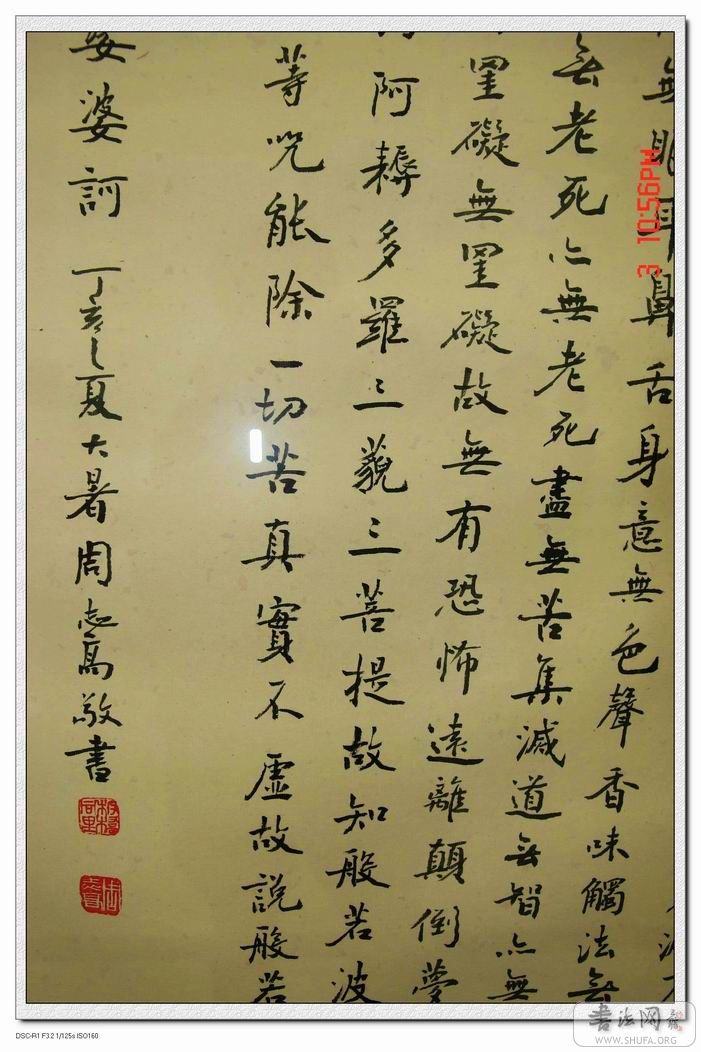 無眼耳鼻舌身意無色聲香味觸法无
无老死亦無老死盡無苦集滅道无智亦無
罣礙無罣礙故無有恐怖遠離顛倒夢
阿耨多羅三藐三菩提故知般若波
等呪能除一切苦真實不虛故說般若
娑婆訶 丁亥之夏大暑周志高敬書
3 10:56PM
DSC-R1 F3.2 1/125s ISO160
书法网
WWW.SHUFA.ORG